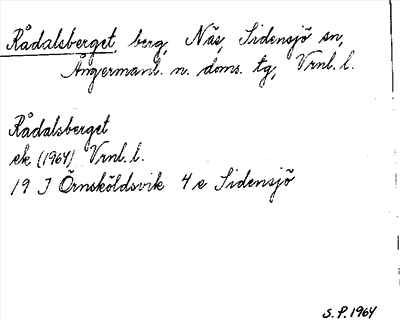 Rådalsberget, berg, Näs, Sidensjö sn,
Ångermanl. n. doms. tg, Vrnl. l.
Rådalsberget
ek (1964) Vrnl. l.
19 J Örnsköldsvik 4 e Sidensjö
S.P. 1964